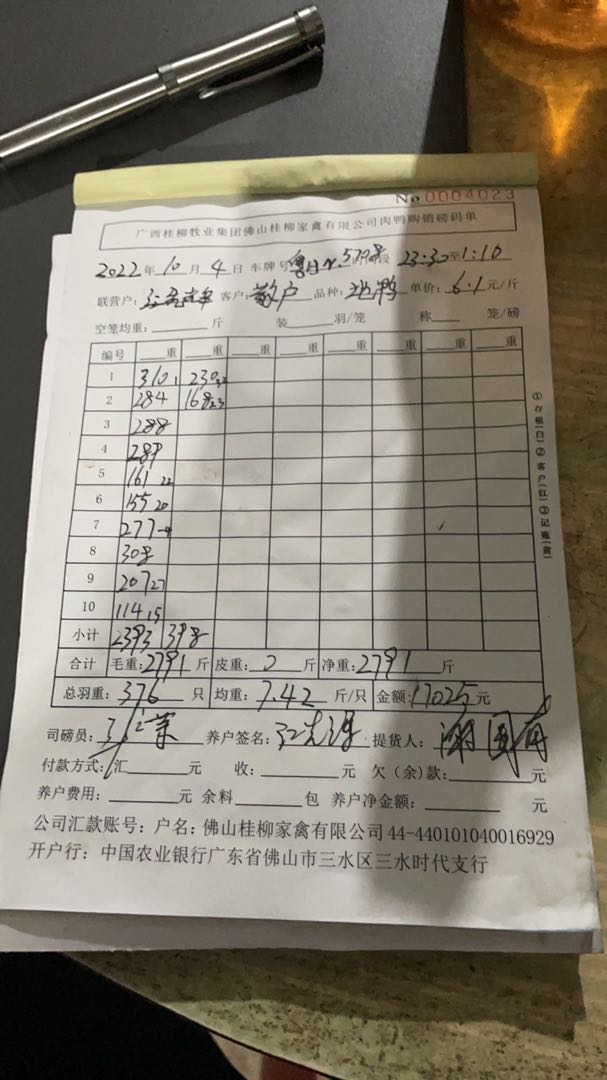 No 0004023
广西桂柳牧业集团佛山桂柳家禽有限公司肉鸭购销磅码单
2022年10月4日 车牌号 时间段 23:30至1:10
联营户: 客户:散户 品种: 鸭 单价:6.1元/斤
空笼均重: 斤 装 羽/笼 称 笼/磅
编号 重 重 重 重 重 重 重 重
1 310 230
2 284 168 23
3 288
4 289
5 161 22
6 155 20
7 277
8 308
9 207 27
10 114 15
小计 2393 398
合计 毛重:2791斤 皮重: 斤 净重:2791斤
总羽重:376只 均重:7.42斤/只 金额:17025元
司磅员: 养户签名: 提货人:
付款方式:汇 元 收: 元 欠(余)款: 元
养户费用: 元 余料 包 养户净金额: 元
公司汇款账号:户名:佛山桂柳家禽有限公司 44-440101040016929
开户行:中国农业银行广东省佛山市三水区三水时代支行
①存根(白)②客户(红)③记账(黄)